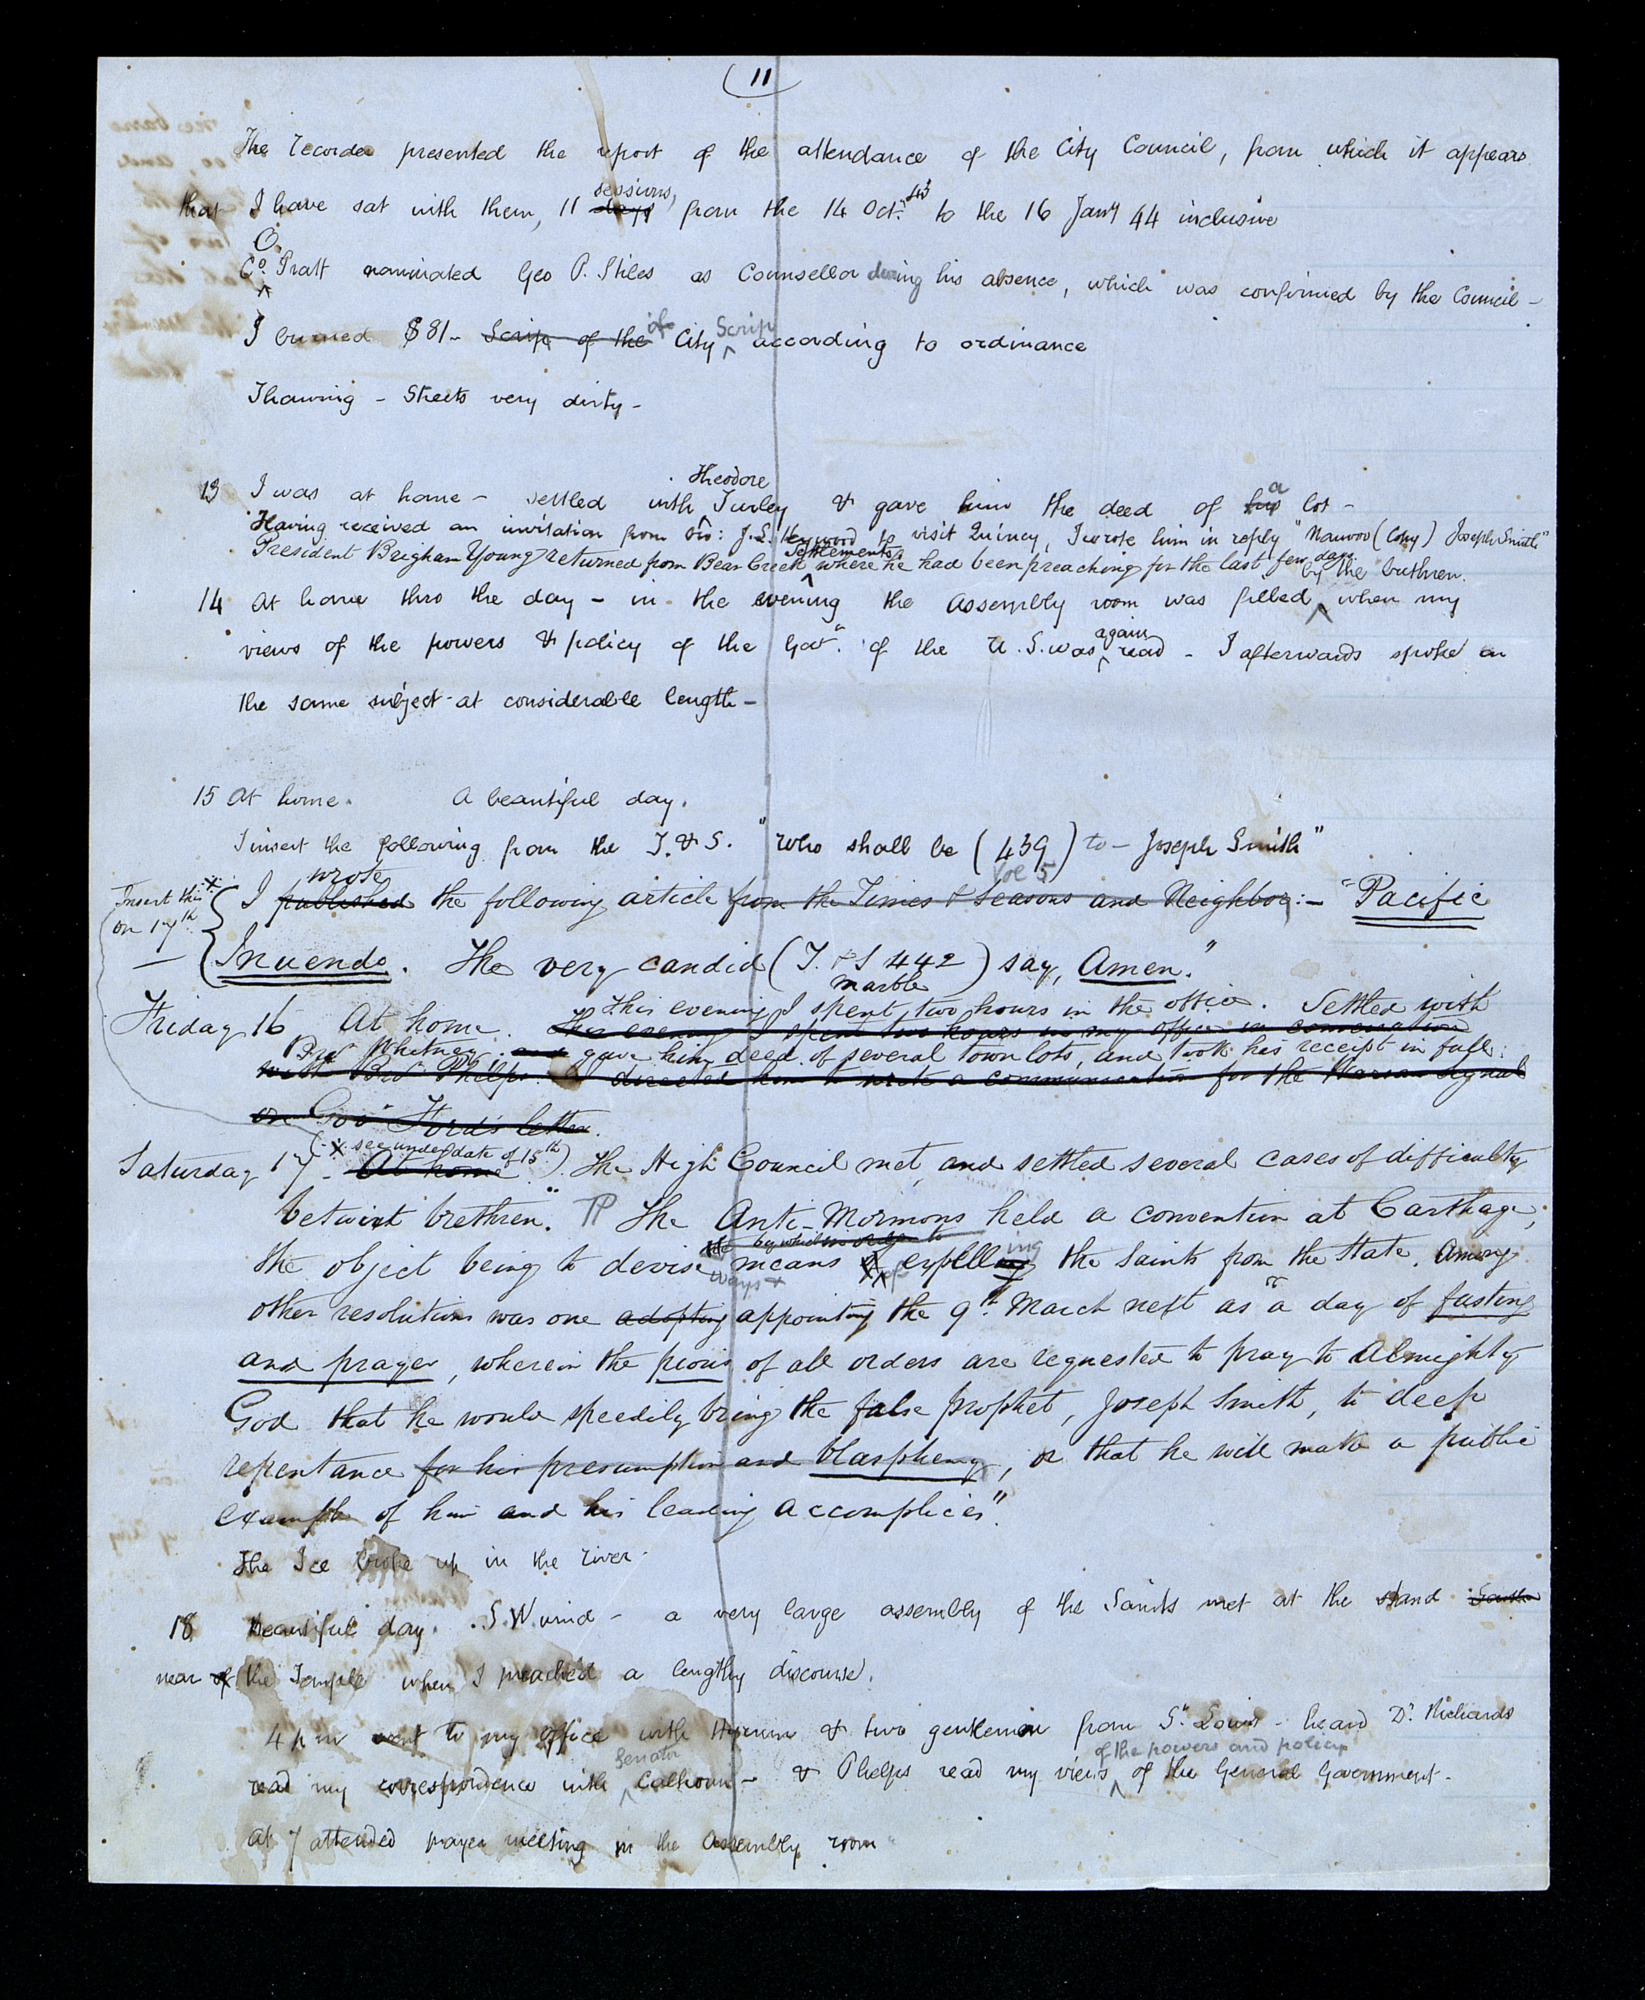 11
The recorder presented the report of the attendance of the City Council, from which it appears
sessions,
that I have sat with them, 11 days from the 14 Oct. 43 to the 16 Jany 44 inclusive
O.
Co. Pratt nominated Geo P. Stiles as Counsellor during his absence, which was confirmed by the Council –
of Scrip
I burned $81– Scrip of the City according to ordinance
Thawing – Streets very dirty –
Theodore
13 I was at home – settled with Turley & gave him the deed of his a lot –
Having received an invitation from bro: J. L. Heywood to visit Quincy, I wrote him in reply "Nauvoo (Copy) Joseph Smith"
Settlements
President Brigham Young returned from Bear Creek where he had been preaching for the last few days.
by the brethren.
14 At home thro the day – in the evening the assembly room was filled when my
again
views of the powers & policy of the Govt. of the U.S. was read – I afterwards spoke on
the same subject at considerable length –
15 At home. A beautiful day.
I insert the following from the T. & S. "Who shall be (439) to – Joseph Smith"
vol 5
Insert this x on 17th
wrote
I published the following article from the Times & Seasons and Neighbor:– "Pacific
Inuendo. The very candid (T. & S 442) say, Amen."
marble
this evening I spent two hours in the office. Settled with
Friday 16 At home. This evening I spent two hours in my office in conversation
Bro Whitney and gave him deed of several town lots, and took his receipt in full:
with Bro Phelps. I directed him to write a communication for the Warsaw Signal
on Gov Ford's letter.
(x see under date of 15th)
Saturday 17 – At home. The High Council met, and settled several cases of difficulty
betwixt brethren." The Anti-Mormons held a convention at Carthage,
by which in order to
the object being to devise means of expelling the Saints from the State. Among
ways &
other resolutions was one adopting appointing the 9th March next as "a day of fasting
and prayer, wherein the pious of all orders are requested to pray to Almighty
God that he would speedily bring the false prophet, Joseph Smith, to deep
repentance for his presumption and blasphemy, or that he will make a public
example of him and his leading accomplices".
The Ice broke up in the river.
18 Beautiful day. S.W. wind – a very large assembly of the Saints met at the stand
near of the Temple when I preached a lengthy discourse.
4 p m went to my office with Hyrum & two gentlemen from St. Louis – heard Dr. Richards
Senator of the powers and policy
read my correspondence with Calhoun – & Phelps read my views of the General Government.
At 7 attended prayer meeting in the assembly room